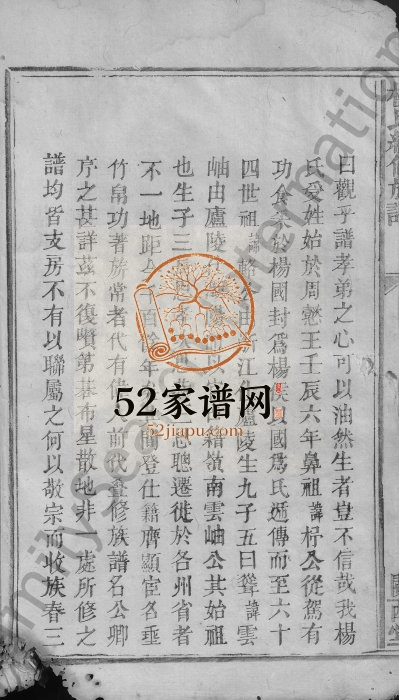 曰觀乎譜孝弟之心可以油然生者豈不信哉我楊
氏受姓始於周懿王壬辰六年鼻祖諱杼公從駕有
功食采於楊國封爲楊侯以國爲氏遞傳而至六十
四世祖諱輅公由浙江 廬陵生九子五曰聳諱雲
岫由廬陵 籍嶺南雲岫公其始祖
也生子三 志聰遷徙於各州省者
不一地距今 百 年 間登仕籍膺顯宦名垂
竹帛功著旂常者代有 人前代疊修族譜名公卿
序之甚詳茲不復贅第碁布星散地非一處所修之
譜均皆支房不有以聯屬之何以敬宗而收族春三
族譜
關西堂
52家谱网
52jiapu.com